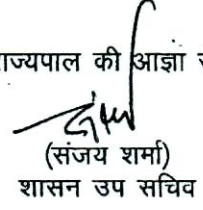 राज्यपाल की आज्ञा
(संजय शर्मा)
शासन उप सचिव